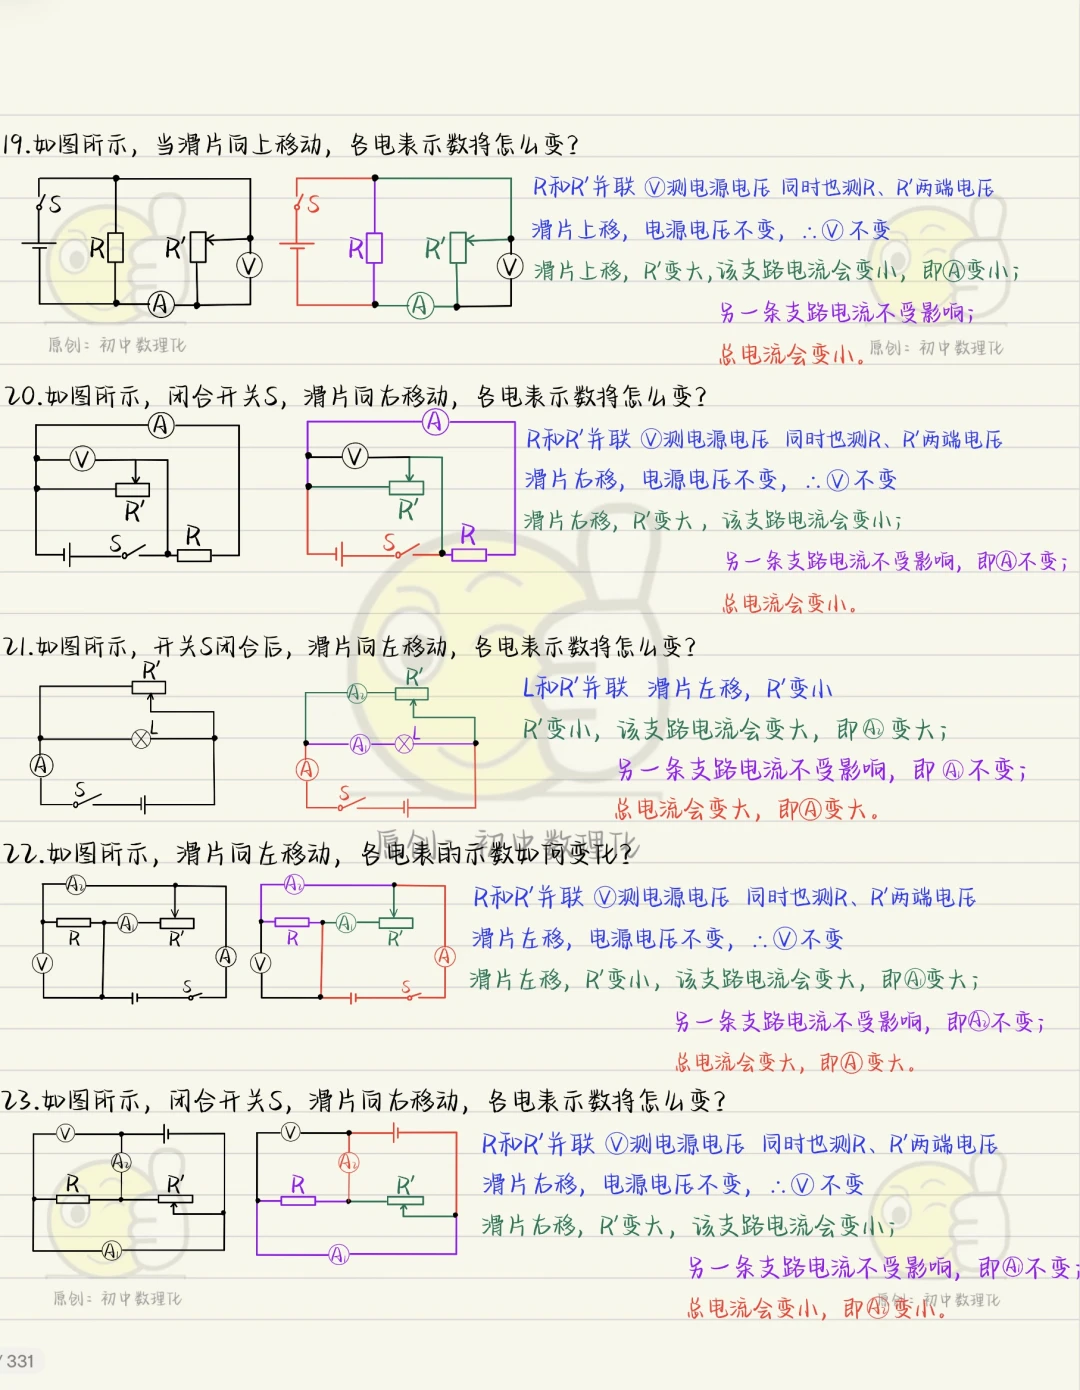 19.如图所示，当滑片向上移动，各电表示数将怎么变？
S R R′ V A
S R R′ V A
R和R′并联 Ⓥ测电源电压 同时也测R、R′两端电压
滑片上移，电源电压不变，∴Ⓥ不变
滑片上移，R′变大，该支路电流会变小，即Ⓐ变小；
另一条支路电流不受影响；
总电流会变小。
原创：初中数理化
原创：初中数理化
20.如图所示，闭合开关S，滑片向右移动，各电表示数将怎么变？
A V R′ S R
A V R′ S R
R和R′并联 Ⓥ测电源电压 同时也测R、R′两端电压
滑片右移，电源电压不变，∴Ⓥ不变
滑片右移，R′变大，该支路电流会变小；
另一条支路电流不受影响，即Ⓐ不变；
总电流会变小。
21.如图所示，开关S闭合后，滑片向左移动，各电表示数将怎么变？
R′ L A S
A₂ R′ A₁ L A S
L和R′并联 滑片左移，R′变小
R′变小，该支路电流会变大，即A₂变大；
另一条支路电流不受影响，即A₁不变；
总电流会变大，即Ⓐ变大。
原创：初中数理化
22.如图所示，滑片向左移动，各电表的示数如何变化？
A₂ R A₁ R′ V A S
A₂ R A₁ R′ V A S
R和R′并联 Ⓥ测电源电压 同时也测R、R′两端电压
滑片左移，电源电压不变，∴Ⓥ不变
滑片左移，R′变小，该支路电流会变大，即A₁变大；
另一条支路电流不受影响，即A₂不变；
总电流会变大，即Ⓐ变大。
23.如图所示，闭合开关S，滑片向右移动，各电表示数将怎么变？
V A₂ R R′ A₁
V A₂ R R′ A₁
R和R′并联 Ⓥ测电源电压 同时也测R、R′两端电压
滑片右移，电源电压不变，∴Ⓥ不变
滑片右移，R′变大，该支路电流会变小；
另一条支路电流不受影响，即A₁不变；
总电流会变小，即A₂变小。
原创：初中数理化
原创：初中数理化
/ 331